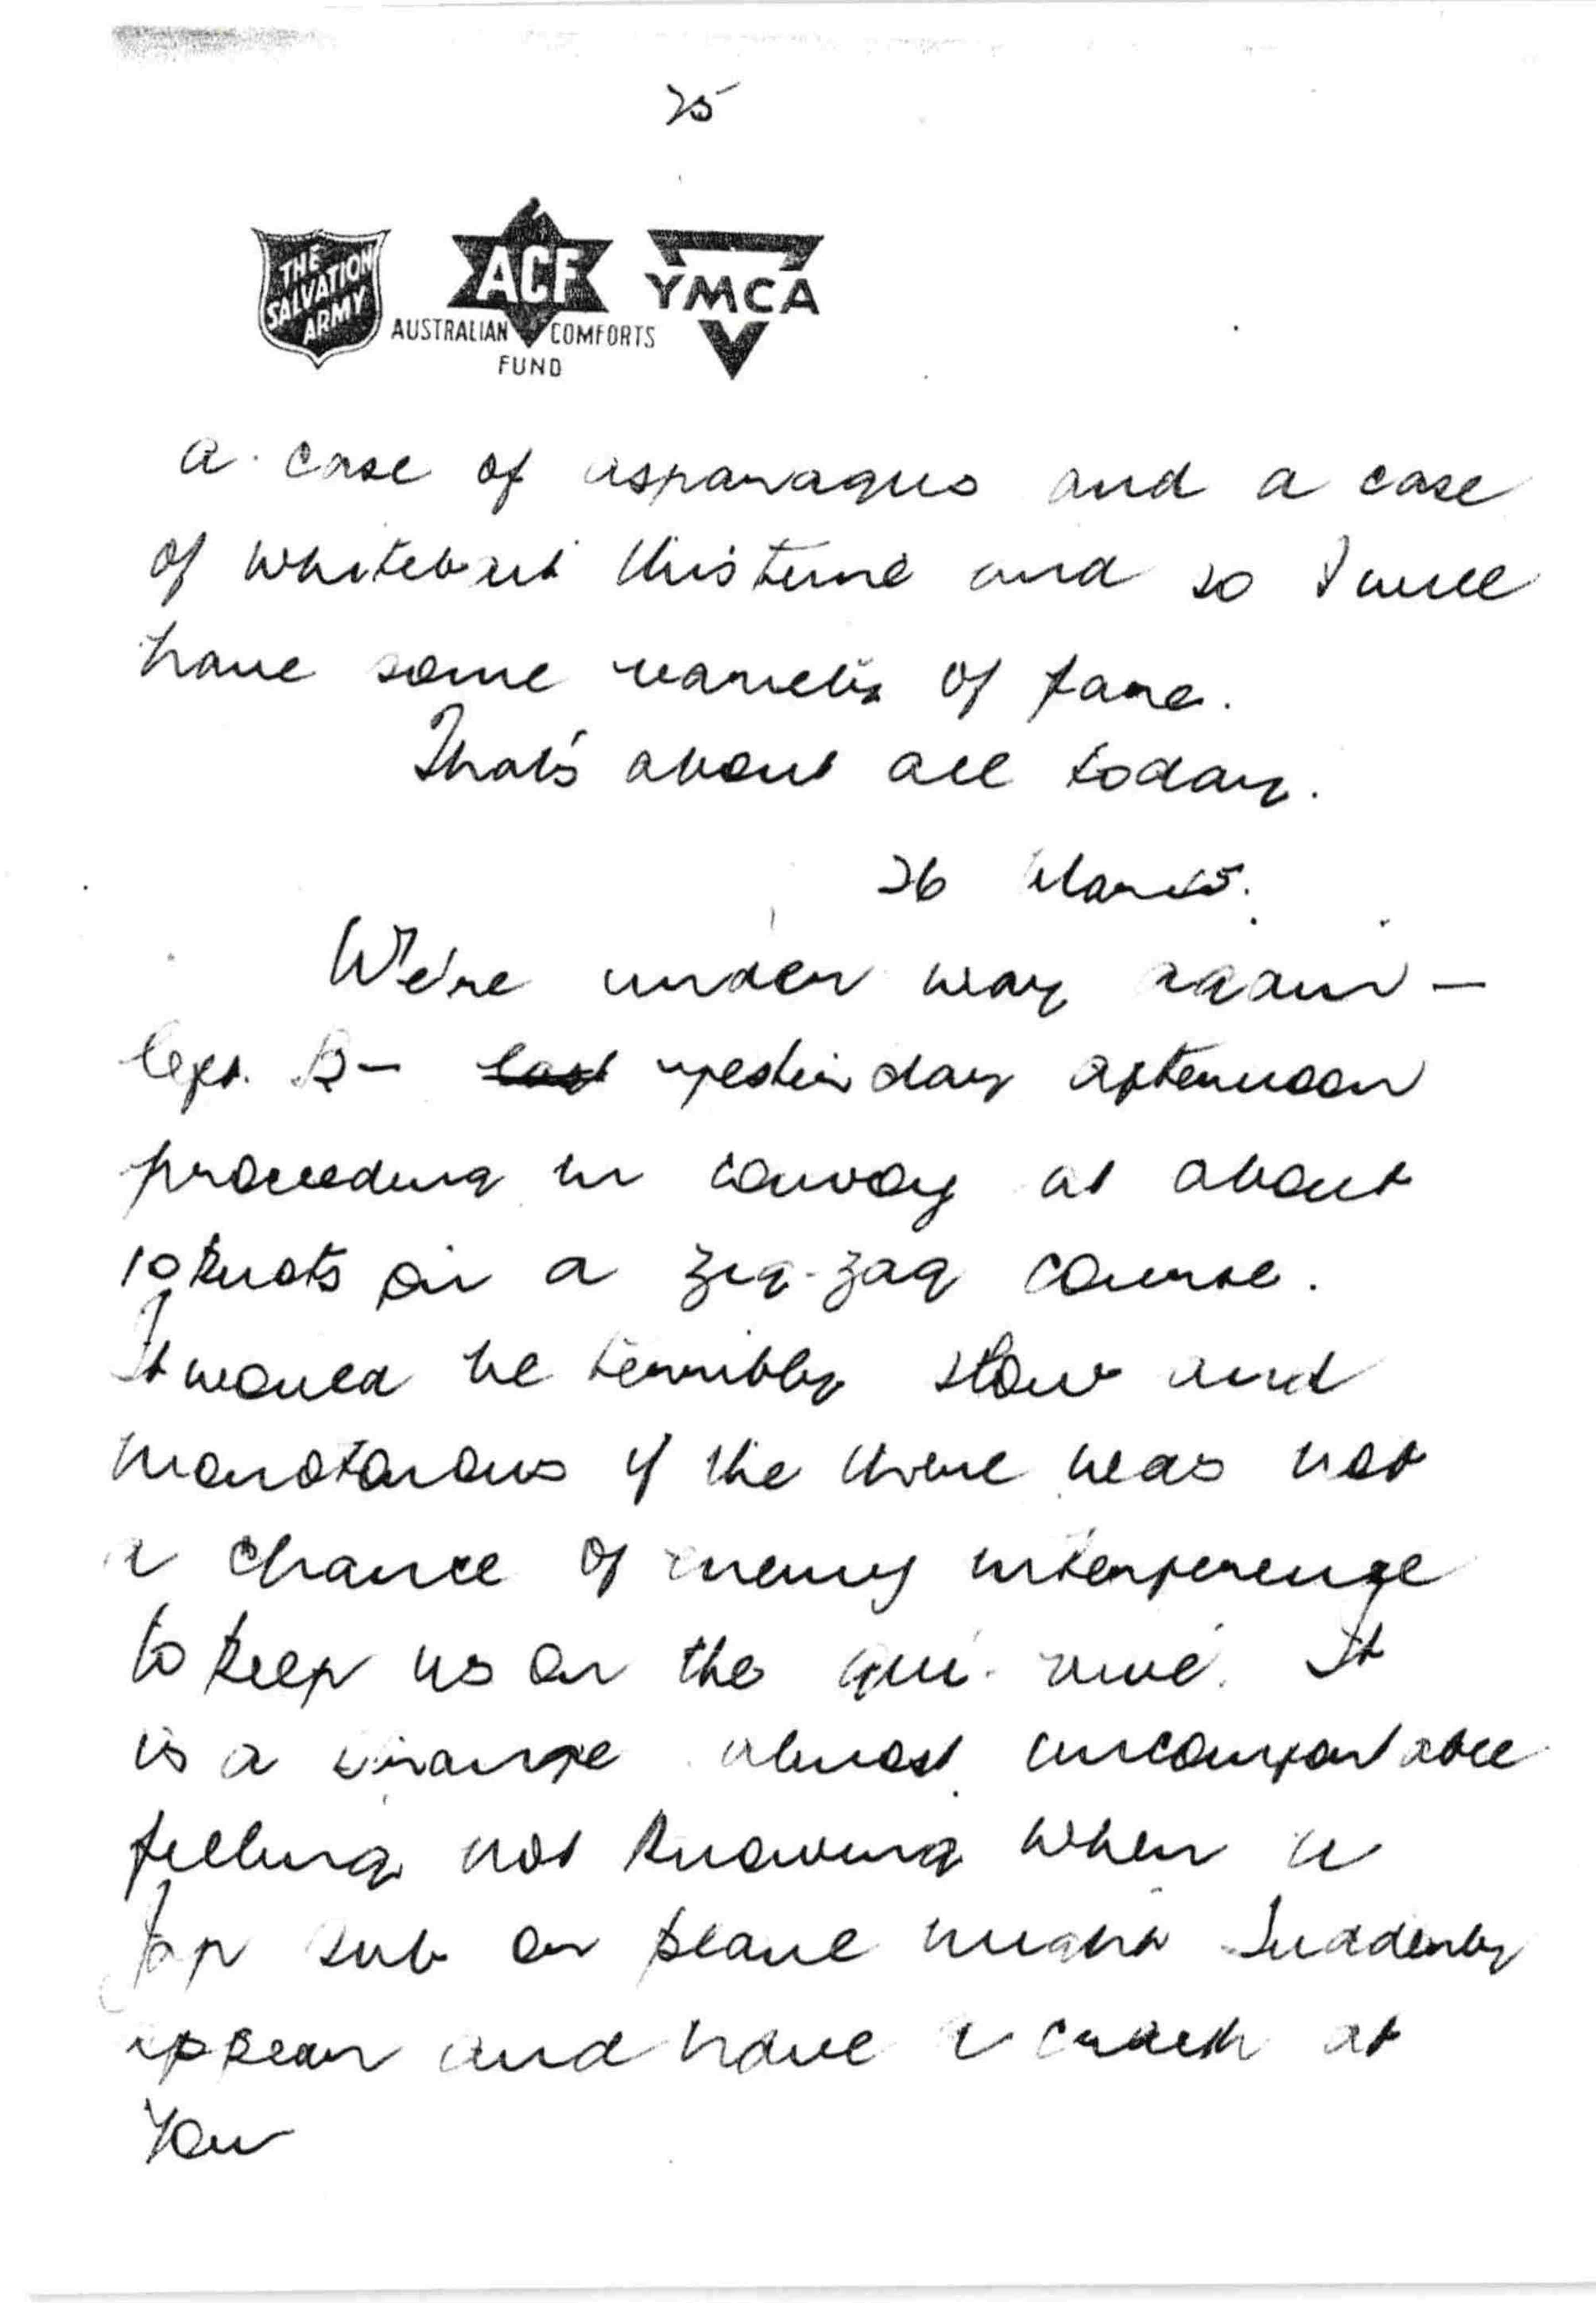 25
THE
SALVATION
ARMY
ACF
AUSTRALIAN COMFORTS
FUND
YMCA
a case of asparagus and a case
of whitebait this time and so I will
have some variety of fare.
That's about all today.
26 March.
We're under way again —
left B— last yesterday afternoon
proceeding in convoy at about
10 knots on a zig-zag course.
It would be terribly slow and
monotonous if the there was not
a chance of enemy interference
to keep us on the qui-vive. It
is a strange almost uncomfortable
feeling not knowing when a
Jap sub or plane might suddenly
appear and have a crack at
you